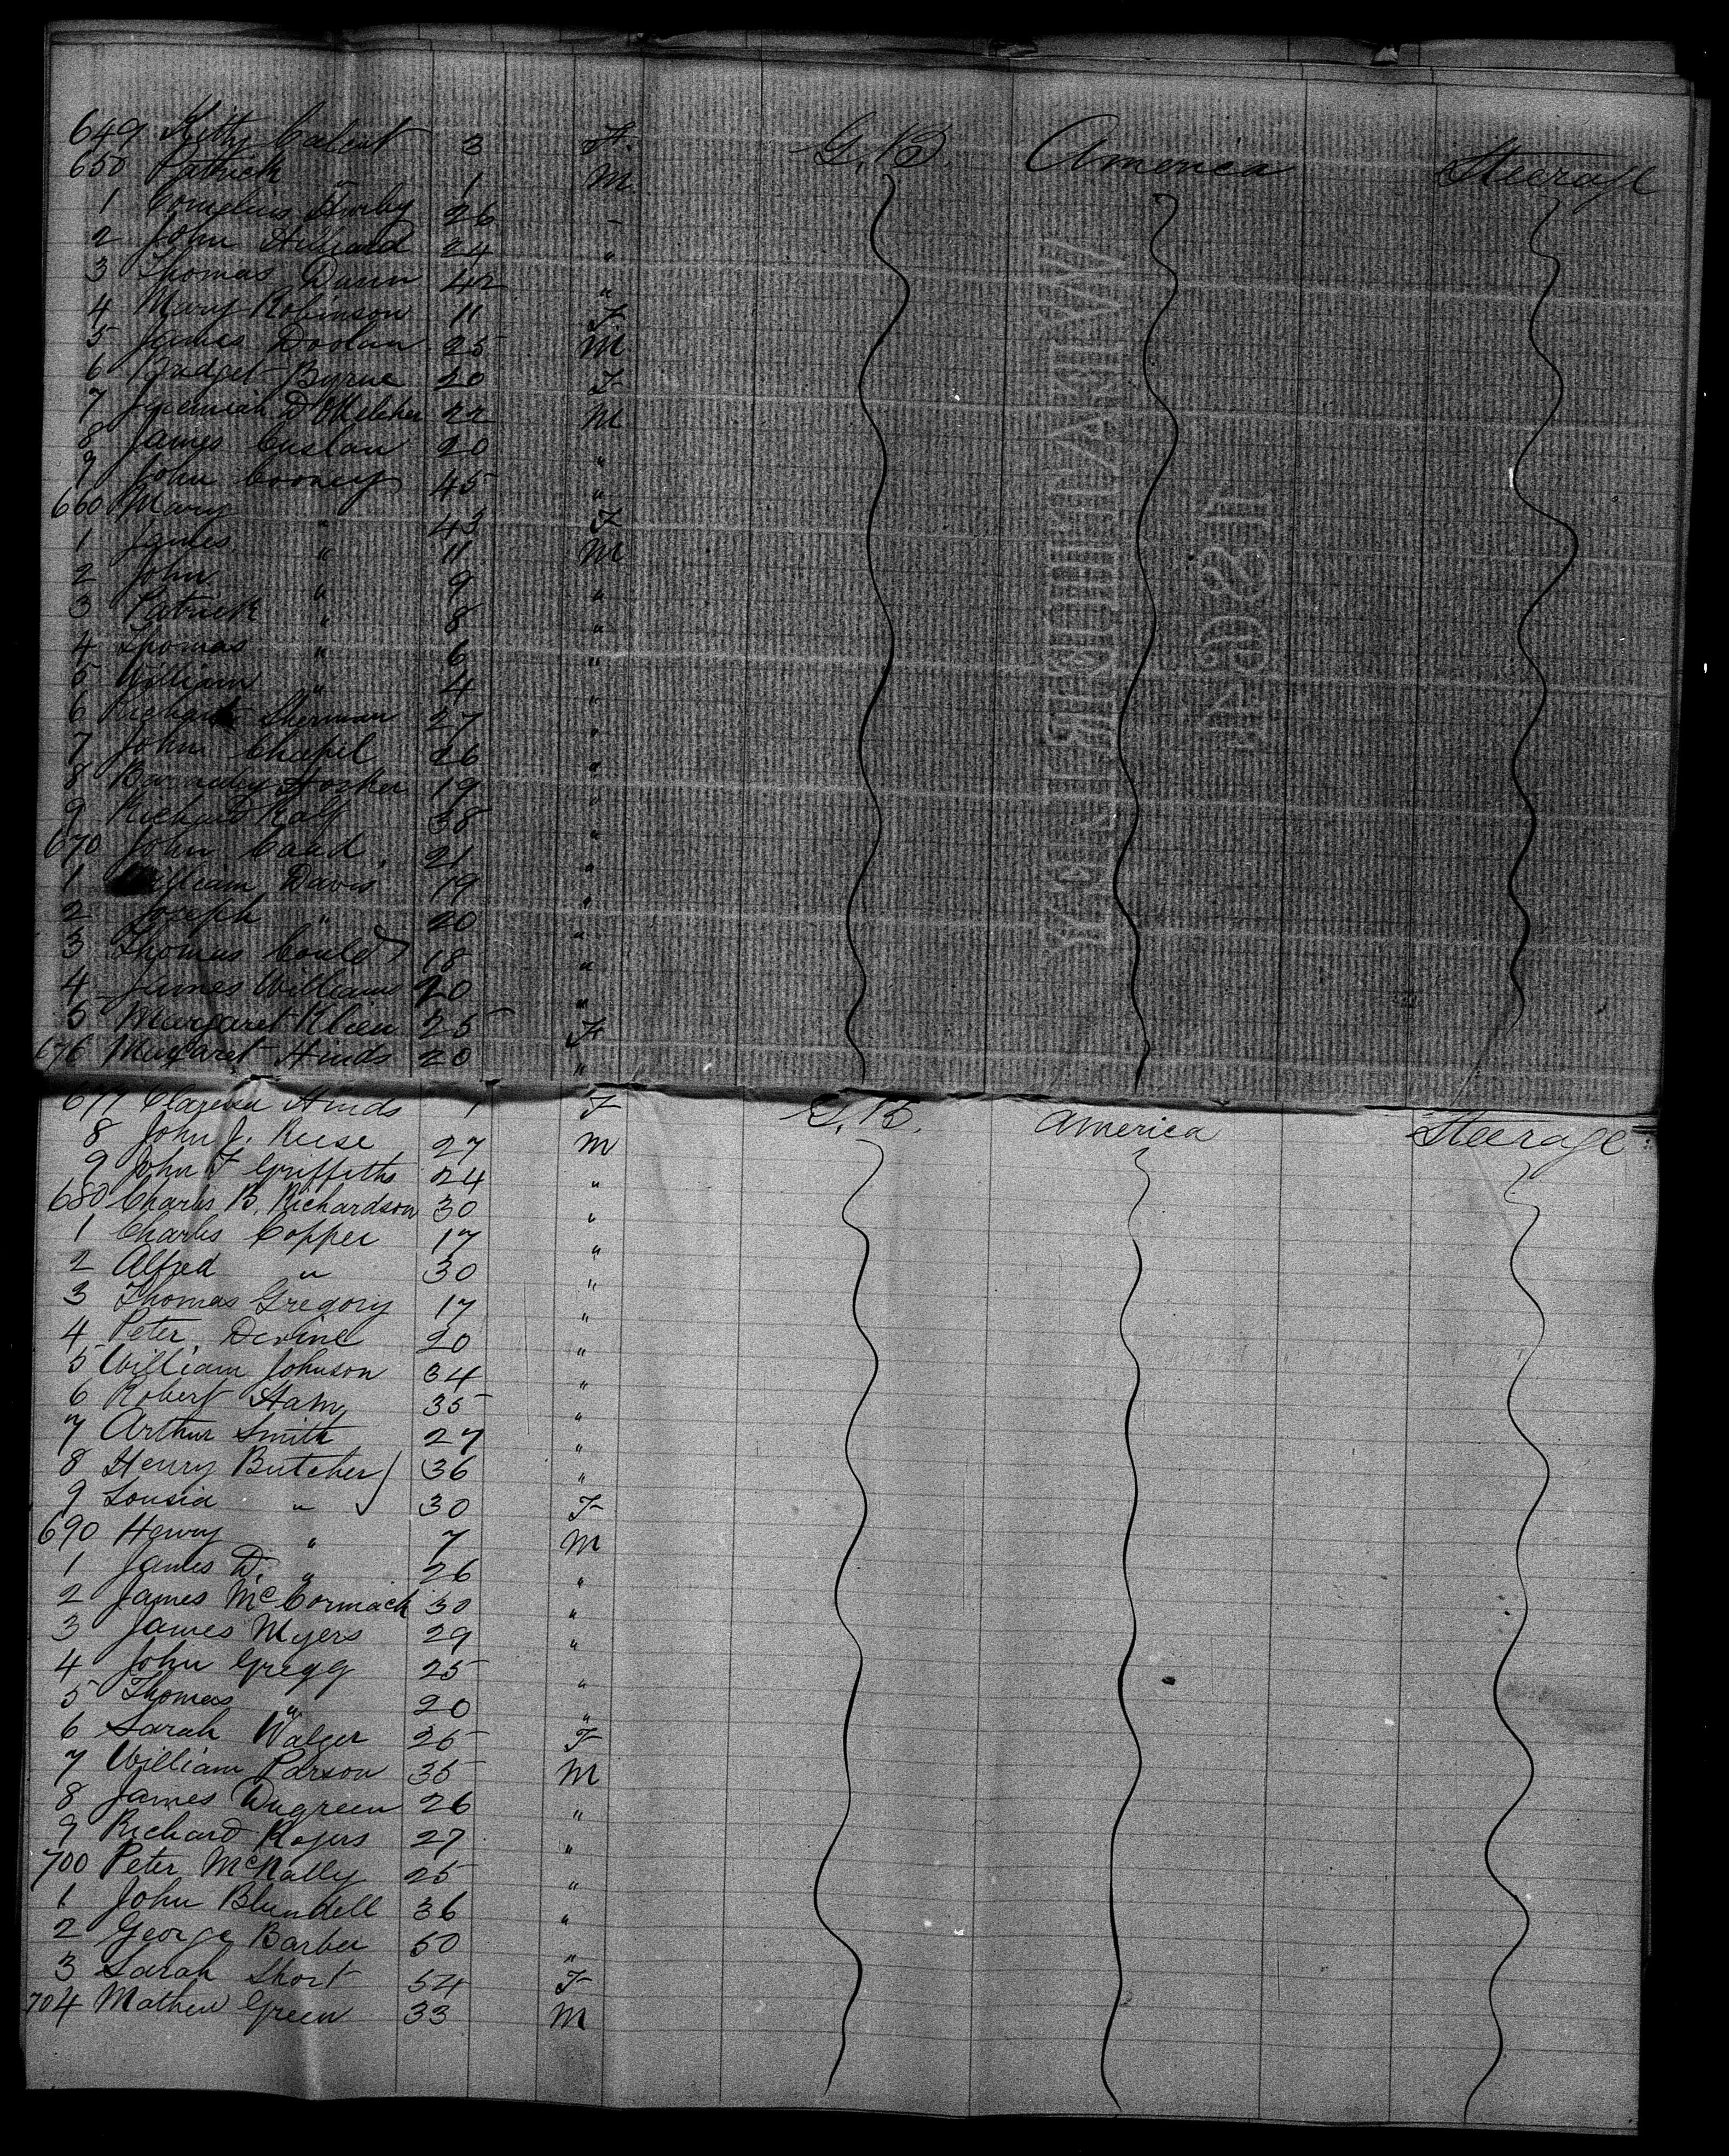 649 Kitty Calcut 3 F. G.B. America Steerage
650 Patrick " 1 M
1 Cornelius 26 "
2 John 24 "
3 Thomas Dunn 42 "
4 Mary Robinson 11 F
5 James Doolan 25 M
6 Bridget Byrne 20 F
7 Jeremiah D 22 M
8 James Cuslan 20 "
9 John Cooney 45 "
660 Mary " 43 F
1 James " 11 M
2 John " 9 "
3 Patrick " 8 "
4 Thomas " 6 "
5 William " 4 "
6 Richard Sherman 27 "
7 John Chapel 26 "
8 Barnaby Hosken 19 "
9 Richard Rolf 38 "
670 John Caud 21 "
1 William Davis 19 "
2 Joseph " 20 "
3 Thomas Could 18 "
4 James Williams 20 "
5 Margaret Klien 25 F
676 Margaret Hinds 20 "
677 Hinds 1 F G.B. America Steerage
8 John J. Reese 27 M
9 John F Griffiths 24 "
680 Charles B. Richardson 30 "
1 Charles Copper 17 "
2 Alfred " 30 "
3 Thomas Gregory 17 "
4 Peter Devine 20 "
5 William Johnson 34 "
6 Robert Ham 35 "
7 Arthur Smith 27 "
8 Henry Butcher 36 "
9 Lousia " 30 F
690 Henry " 7 M
1 James D. " 26 "
2 James McCormack 30 "
3 James Myers 29 "
4 John Gregg 25 "
5 Thomas " 20 "
6 Sarah Walger 26 F
7 William Parson 35 M
8 James Dugreen 26 "
9 Richard Rogers 27 "
700 Peter McNally 25 "
1 John Blundell 36 "
2 George Barber 50 "
3 Sarah Short 54 F
704 Mathew Green 33 M